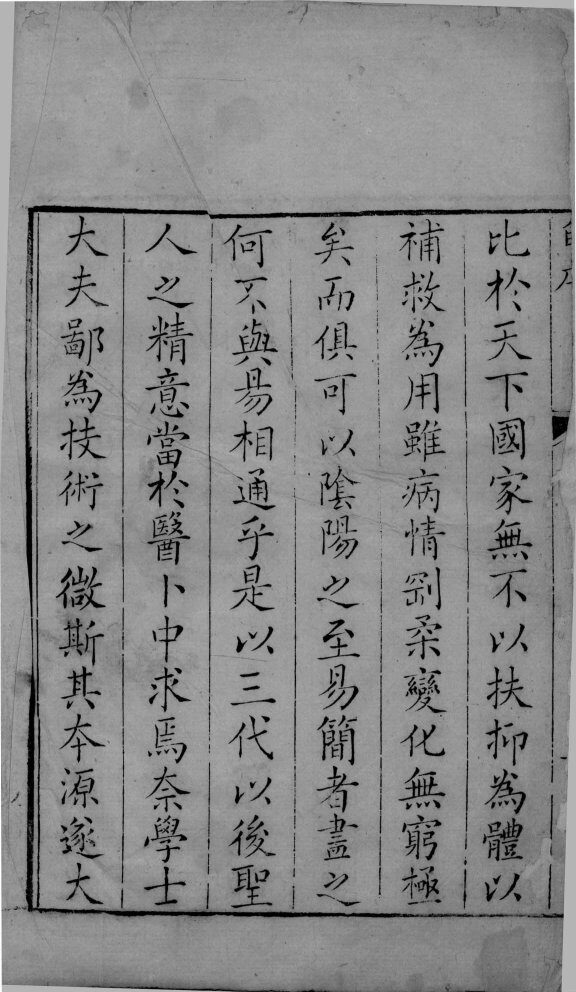 自序
比於天下國家無不以扶抑為體以
補救為用雖病情剛柔變化無窮極
矣而俱可以陰陽之至易簡者盡之
何不與易相通乎是以三代以後聖
人之精意當於醫卜中求焉奈學士
大夫鄙為技術之微斯其本源遂大